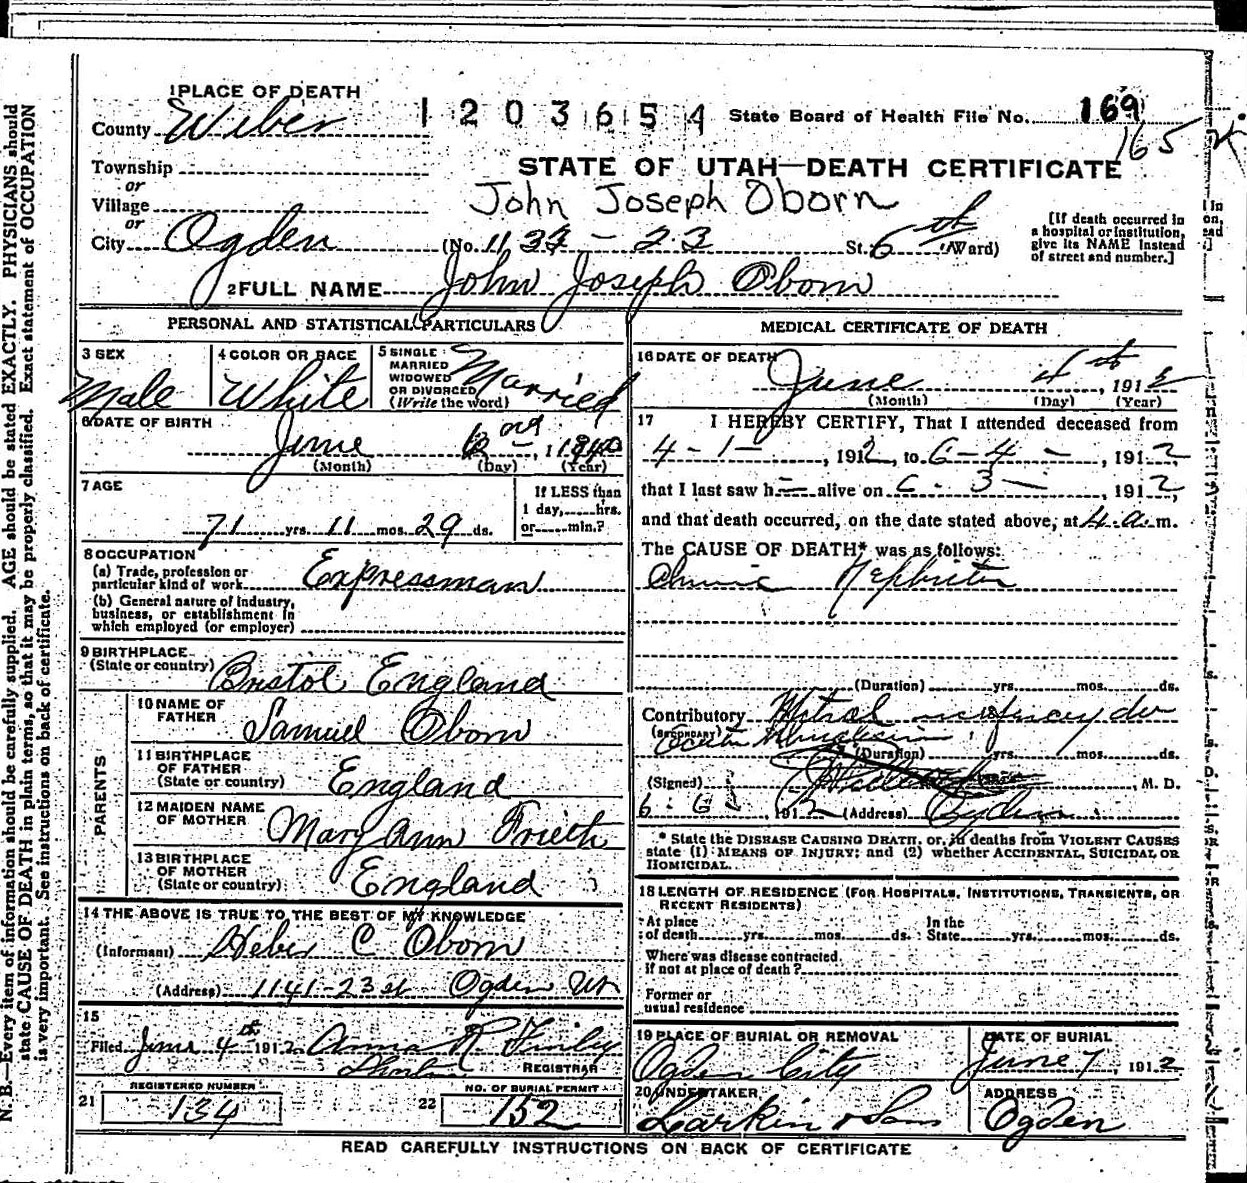 1 PLACE OF DEATH
County Weber
1203654
State Board of Health File No. 169
165
Township
or
Village
or
City Ogden
STATE OF UTAH—DEATH CERTIFICATE
John Joseph Oborn
(No. 1132 - 23 St. 6th Ward)
[If death occurred in a hospital or institution, give its NAME instead of street and number.]
2 FULL NAME John Joseph Oborn
PERSONAL AND STATISTICAL PARTICULARS
3 SEX
Male
4 COLOR OR RACE
White
5 SINGLE MARRIED WIDOWED OR DIVORCED (Write the word)
Married
6 DATE OF BIRTH
June
(Month) (Day) (Year)
7 AGE
71 yrs. 11 mos. 29 ds.
If LESS than 1 day, hrs. or min.?
8 OCCUPATION
(a) Trade, profession or particular kind of work Expressman
(b) General nature of industry, business, or establishment in which employed (or employer)
9 BIRTHPLACE
(State or country) Bristol England
PARENTS
10 NAME OF FATHER Samuel Oborn
11 BIRTHPLACE OF FATHER (State or country) England
12 MAIDEN NAME OF MOTHER Mary Ann
13 BIRTHPLACE OF MOTHER (State or country) England
14 THE ABOVE IS TRUE TO THE BEST OF MY KNOWLEDGE
(Informant) Heber C Oborn
(Address) 1141-23 st Ogden Ut
15
Filed June 4th 1912 Anna R Finley
REGISTRAR
21 REGISTERED NUMBER 134
22 NO. OF BURIAL PERMIT 152
MEDICAL CERTIFICATE OF DEATH
16 DATE OF DEATH
June 4th, 1912
(Month) (Day) (Year)
17 I HEREBY CERTIFY, That I attended deceased from
4-1-, 1912, to 6-4-, 1912,
that I last saw h alive on 6-3-, 1912,
and that death occurred, on the date stated above, at 4 a.m.
The CAUSE OF DEATH* was as follows:
Chronic Nephritis
(Duration) yrs. mos. ds.
Contributory Mitral
(SECONDARY)
(Duration) yrs. mos. ds.
(Signed) , M. D.
6-6, 1912 (Address) Ogden
* State the DISEASE CAUSING DEATH, or, in deaths from VIOLENT CAUSES state (1) MEANS OF INJURY; and (2) whether ACCIDENTAL, SUICIDAL, OR HOMICIDAL.
18 LENGTH OF RESIDENCE (FOR HOSPITALS, INSTITUTIONS, TRANSIENTS, OR RECENT RESIDENTS)
At place of death yrs. mos. ds. In the State yrs. mos. ds.
Where was disease contracted, if not at place of death?
Former or usual residence
19 PLACE OF BURIAL OR REMOVAL
Ogden City
DATE OF BURIAL
June 7, 1912
20 UNDERTAKER
Larkin & Sons
ADDRESS
Ogden
READ CAREFULLY INSTRUCTIONS ON BACK OF CERTIFICATE
N. B.—Every item of information should be carefully supplied. AGE should be stated EXACTLY. PHYSICIANS should
state CAUSE OF DEATH in plain terms, so that it may be properly classified. Exact statement of OCCUPATION
is very important. See instructions on back of certificate.